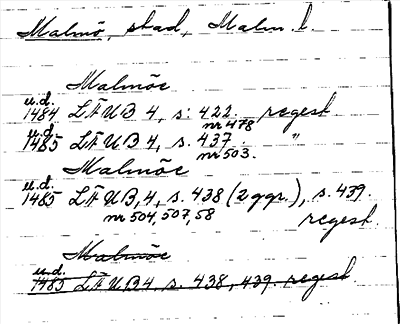 Malmö, stad, Malm. l.
Malmöe
u.d.
1484 LÄUB 4, s. 422. regest.
nr 478
u.d.
1485 LÄUB 4, s. 437. "
nr 503.
Malmöe
u.d.
1485 LÄUB, 4, s. 438 (2 ggr.), s. 439.
nr 504, 507, 58 regest
Malmöe
u.d.
1485 LÄUB 4, s. 438, 439. regest